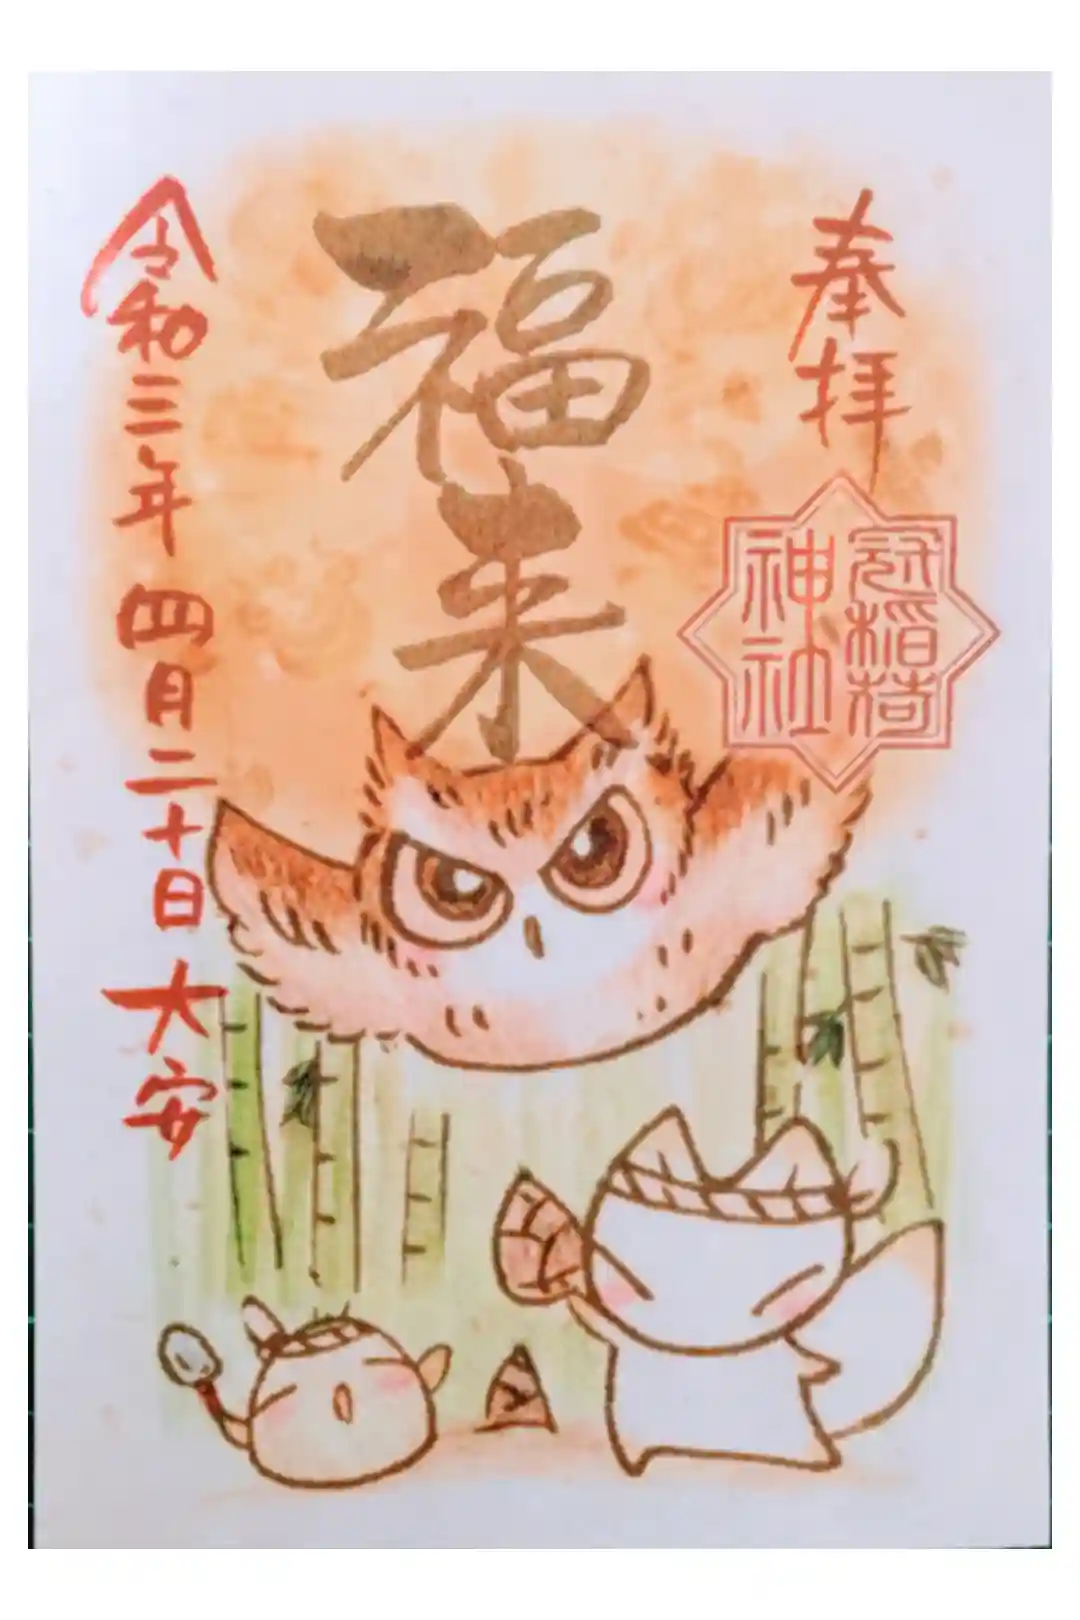 奉拝
冠稲荷
神社
福来
令和三年四月二十日大安